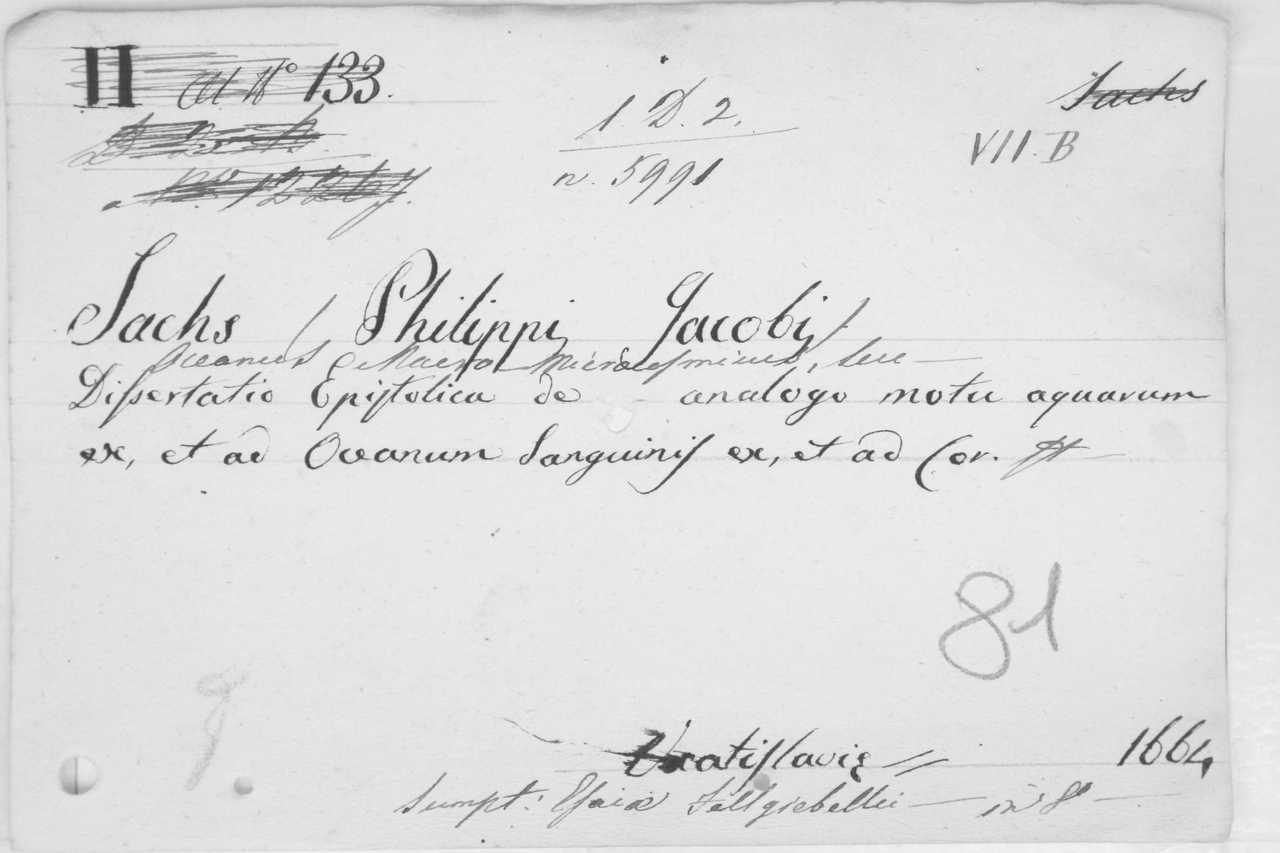 II 133.
1. D. 2.
Sachs
VII. B
n. 5991
Sachs / Philippi Jacobi /.
Oceanus Macro-Microcosmicus, seu —
Dissertatio Epistolica de analogo motu aquarum
ex, et ad Oceanum Sanguinis ex, et ad Cor.
81
Vratislaviæ // 1664,
Sumpt: Esaiæ Fellgiebelii — in 8° —